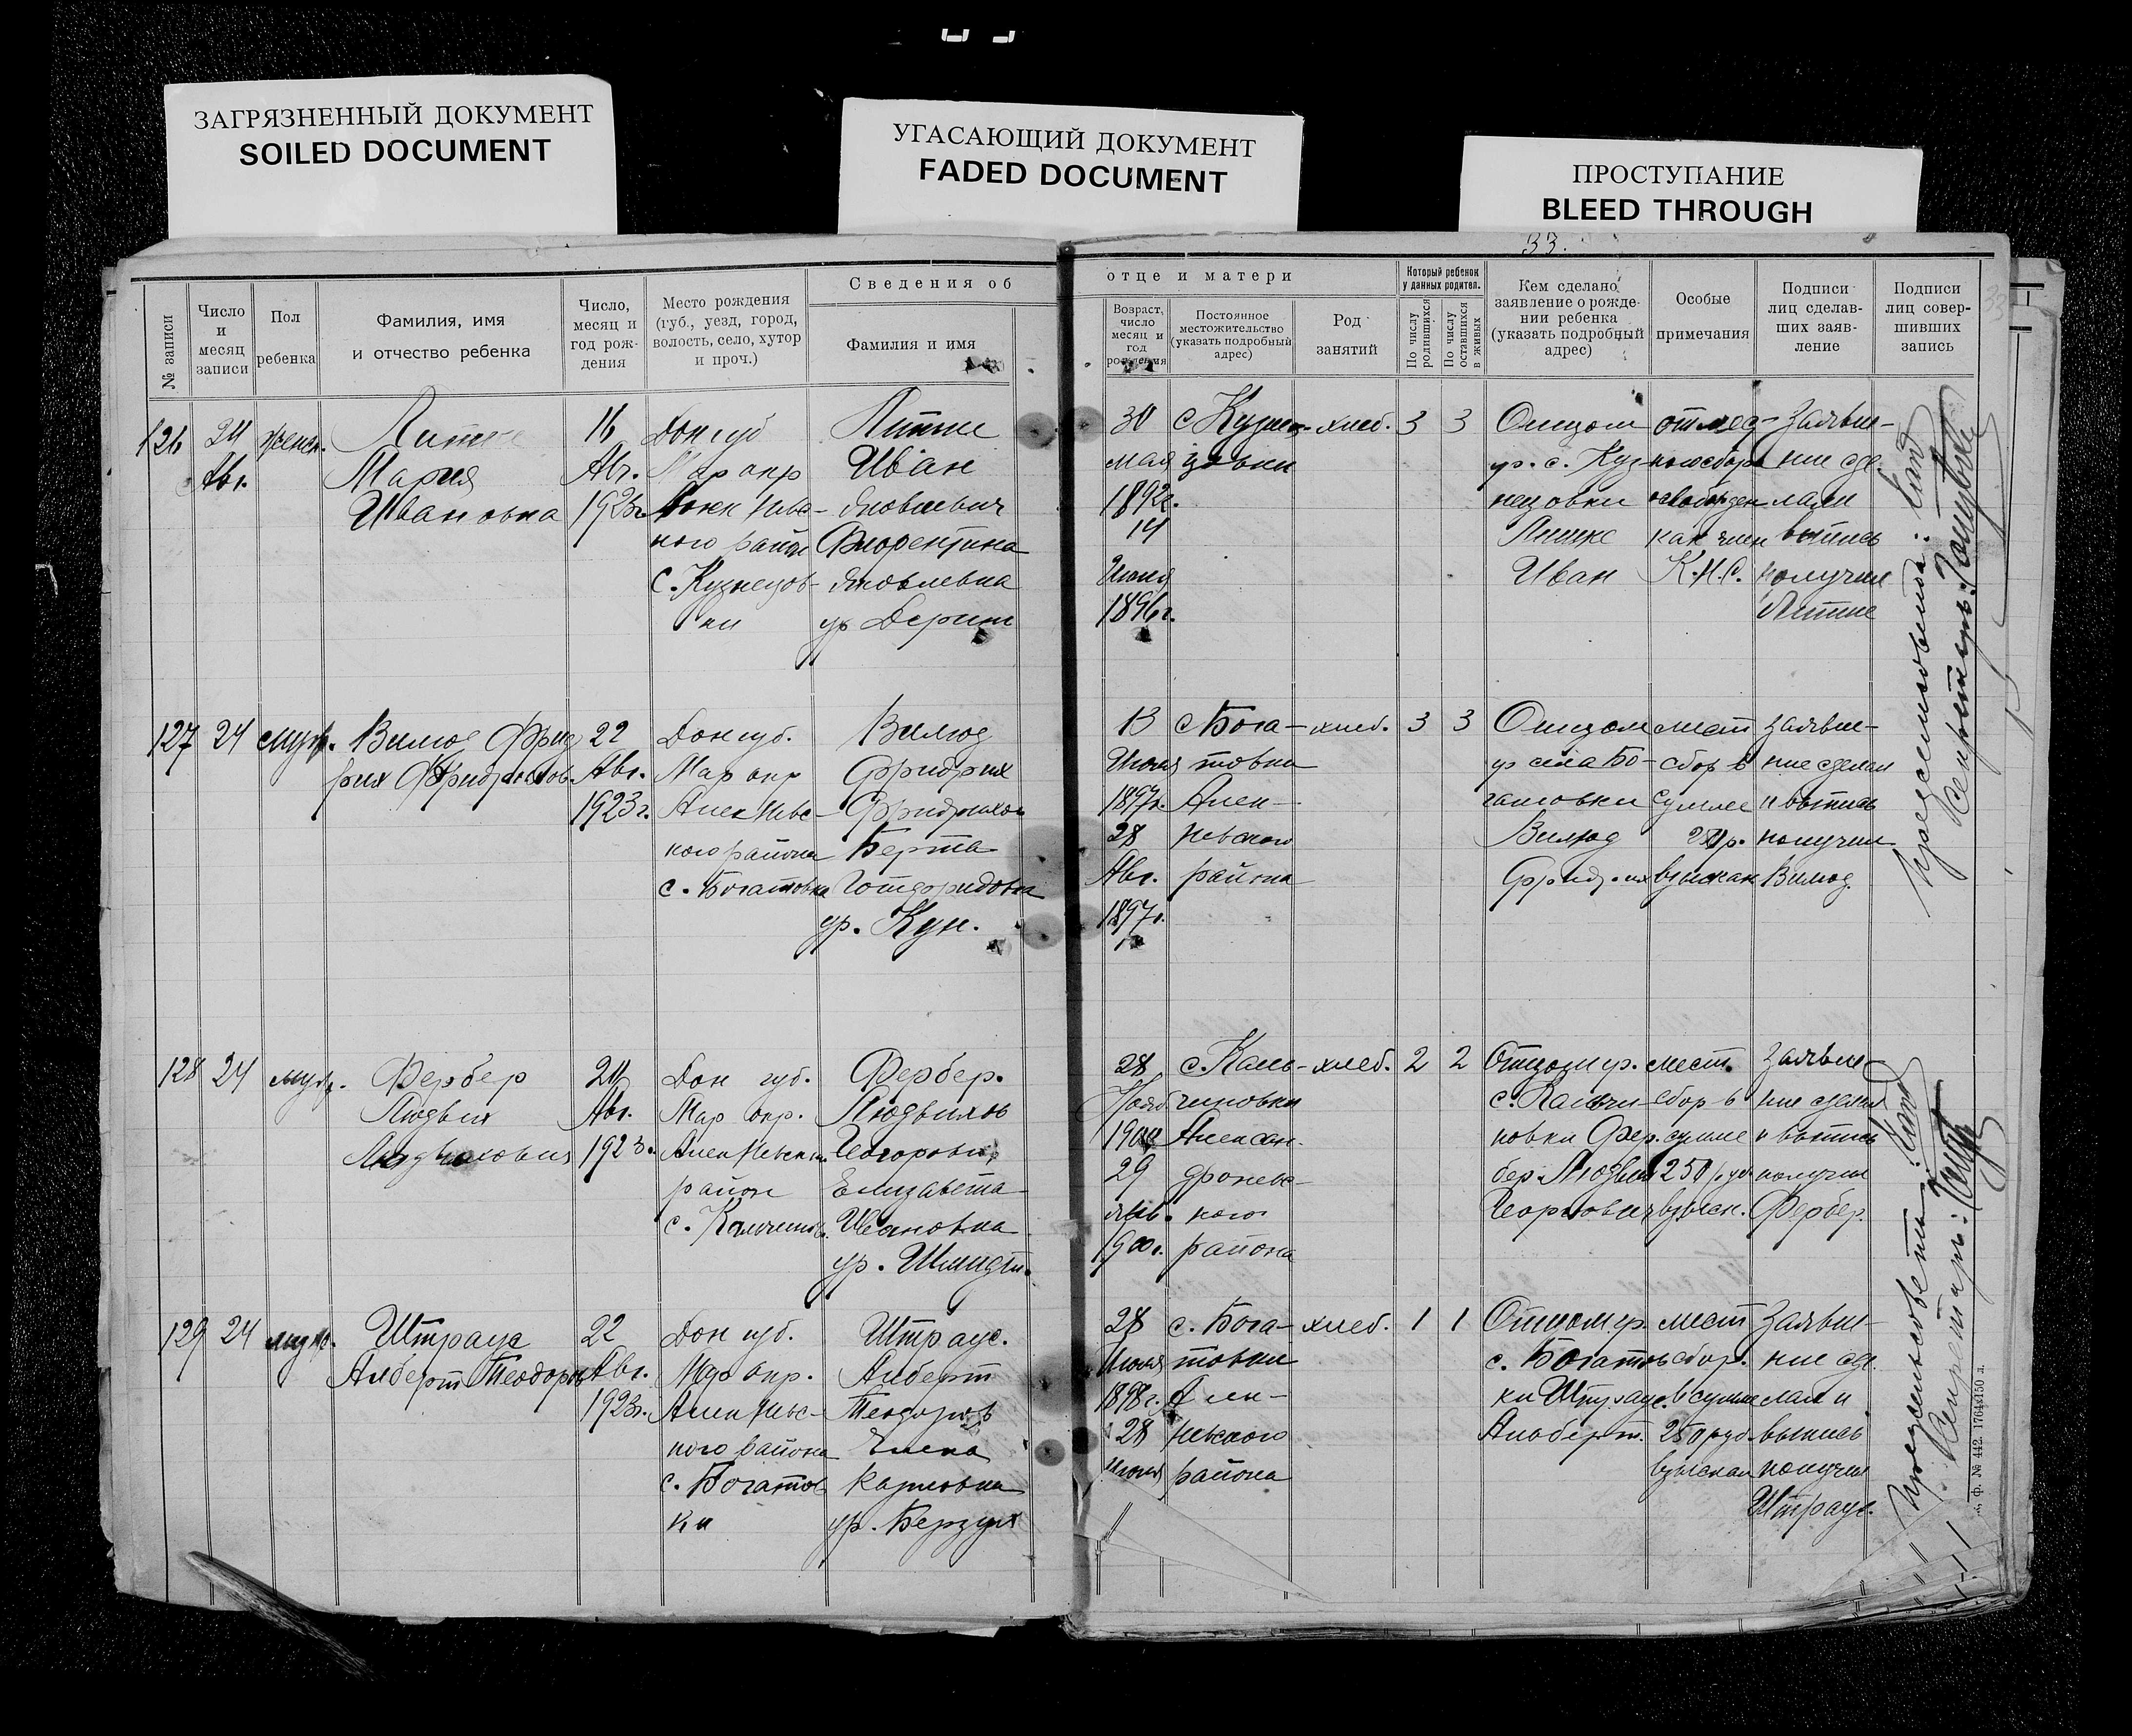 ЗАГРЯЗНЕННЫЙ ДОКУМЕНТ
SOILED DOCUMENT
УГАСАЮЩИЙ ДОКУМЕНТ
FADED DOCUMENT
ПРОСТУПАНИЕ
BLEED THROUGH
33.
№ записи
Число и месяц записи
Пол ребенка
Фамилия, имя и отчество ребенка
Число, месяц и год рождения
Место рождения (губ., уезд, город, волость, село, хутор и проч.)
Сведения об отце и матери
Фамилия и имя
Возраст, число месяц и год рождения
Постоянное местожительство (указать подробный адрес)
Род занятий
Который ребенок у данных родител.
По числу родившихся
По числу оставшихся в живых
Кем сделано заявление о рождении ребенка (указать подробный адрес)
Особые примечания
Подписи лиц сделавших заявление
Подписи лиц совершивших запись
126
24
Авг.
женск.
Мария
Ивановна
16
Авг.
1923г.
Дон губ
Мар окр
кого район
с. Кузнецов-
ки
Иван
Яковлевич
Флорентина
Яковлевна
ур
30
мая
1892г.
14
1896г.
с Кузне-
цовки
хлеб.
3
3
Отцом
гр. с. Куз
нецовки
Иван
освобожден
как член
К.Н.С.
Заявле-
ние сде-
лали
выпись
получил
127
24
мужс.
Вилюд Фрид
рих Фридрихов.
22
Авг.
1923г.
Дон губ.
Мар окр
Алек Невс-
кого района
с. Богатовка
Вилюд
Фридрих
Фридрихов
Берта
Готфридовна
ур. Кун.
13
Июля
1897г.
28
Авг.
1897г.
с Бога-
товка
Алек-
невского
района
хлеб.
3
3
Отцом
гр села Бо-
гатовки
Вилюд
мест
сбор в
сумме
взыскан
Заявле-
ние сделал
и выпись
получил
Вилюд.
128
24
мужс.
Фербер
Людвих
Людвихович
24
Авг.
1923г.
Дон губ.
Мар окр.
Алек Невского
район
с. Кальчинов.
Фербер.
Людвихов
Елизавета
Ивановна
ур. Шмидт.
28
Нояб
29
Янв.
1900г.
с. Каль-
чиновки
Алексан-
дроневс-
кого
района
хлеб.
2
2
Отцом гр.
с. Кальчи-
новки Фер-
бер Людвих
Георгович
мест.
сбор в
сумме
250 руб
взыск.
Заявле-
ние сделал
и выпись
получил
Фербер.
129
24
мужс.
Штраус
Алберт Теодоров
22
Авг.
1923г.
Дон губ.
Мар окр.
Алек Невс-
кого района
с. Богатов
ки
Штраус.
Алберт
Теодоров
Елена
Карловна
ур.
28
Июля
1898г.
28
Июля
с. Бога-
товки
Алек-
невского
района
хлеб.
1
1
Отцом гр.
с. Богатов
ки Штраус
Альберт.
мест
сбор.
в сумме
250 руб
взыскан
Заявле-
ние сде-
лал и
выпись
получил
Штраус.
Секретарь:
Секретарь: